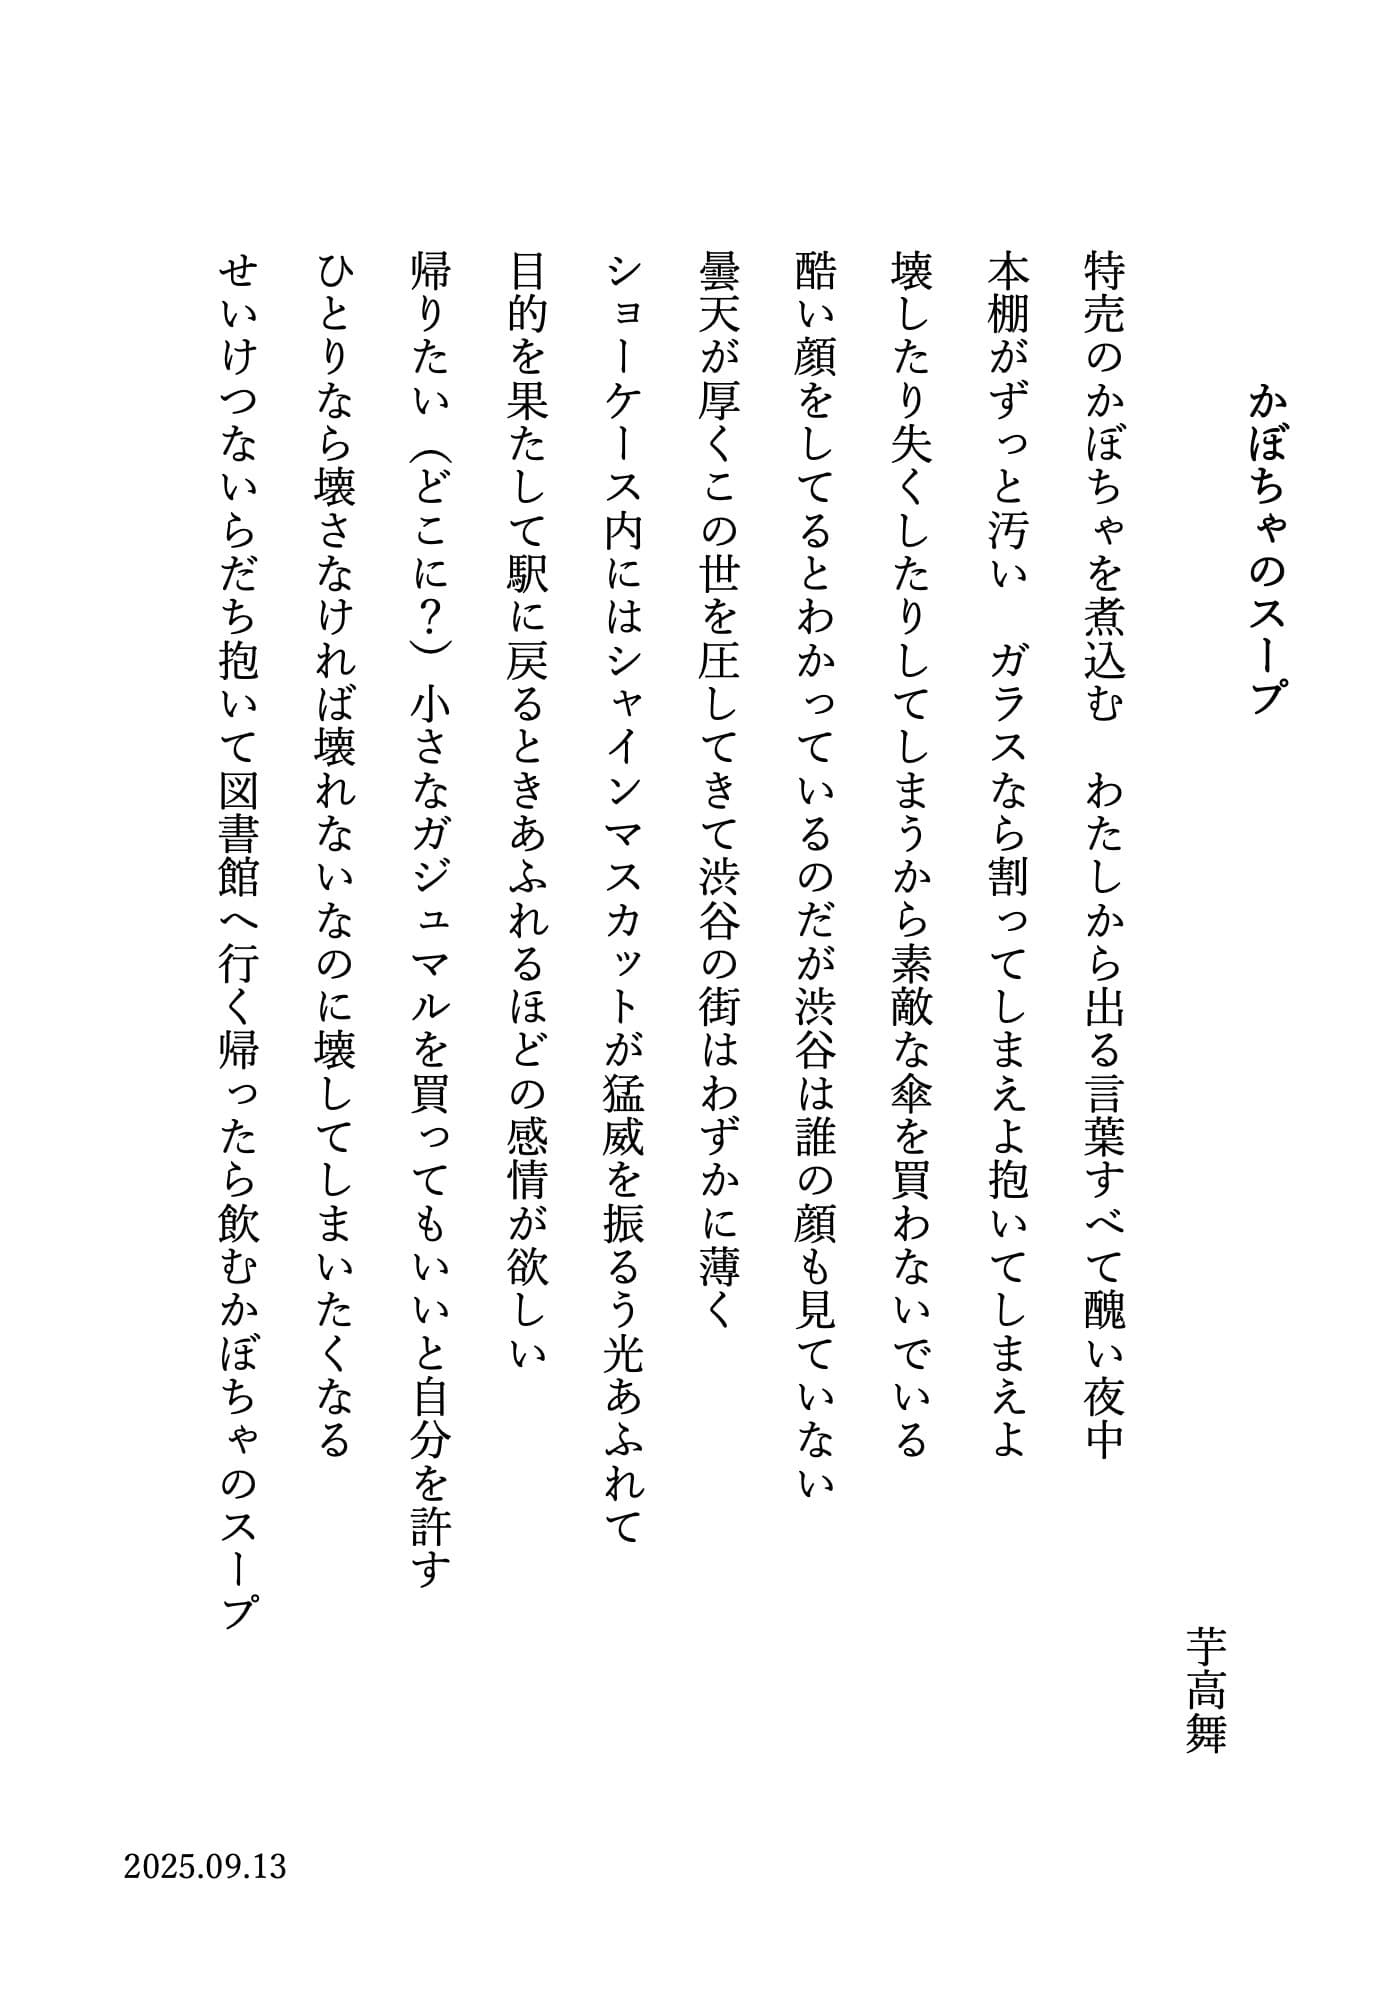 かぼちゃのスープ
芋高舞
特売のかぼちゃを煮込む　わたしから出る言葉すべて醜い夜中
本棚がずっと汚い　ガラスなら割ってしまえよ抱いてしまえよ
壊したり失くしたりしてしまうから素敵な傘を買わないでいる
酷い顔をしてるとわかっているのだが渋谷は誰の顔も見ていない
曇天が厚くこの世を圧してきて渋谷の街はわずかに薄く
ショーケース内にはシャインマスカットが猛威を振るう光あふれて
目的を果たして駅に戻るときあふれるほどの感情が欲しい
帰りたい（どこに？）小さなガジュマルを買ってもいいと自分を許す
ひとりなら壊さなければ壊れないなのに壊してしまいたくなる
せいけつないらだち抱いて図書館へ行く帰ったら飲むかぼちゃのスープ
2025.09.13